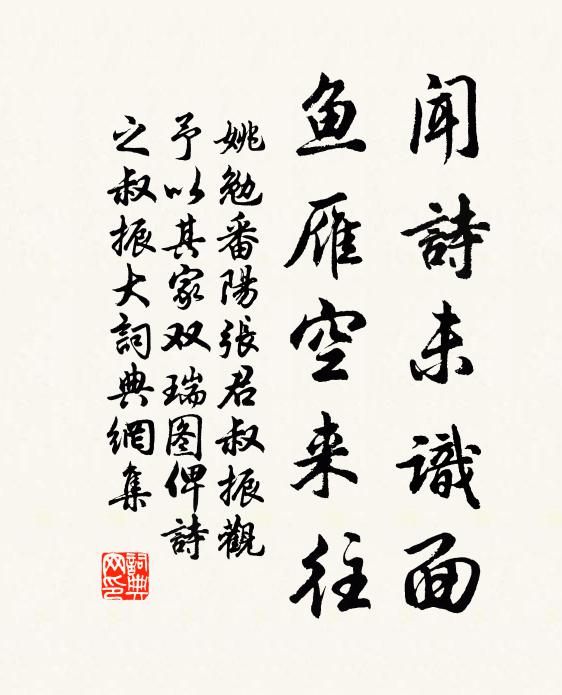 闻詩未識面
鱼雁空来往
姚勉番陽張君叔振觀
予以其家双瑞图俾詩
之叔振大詞典網集
詞典
网印